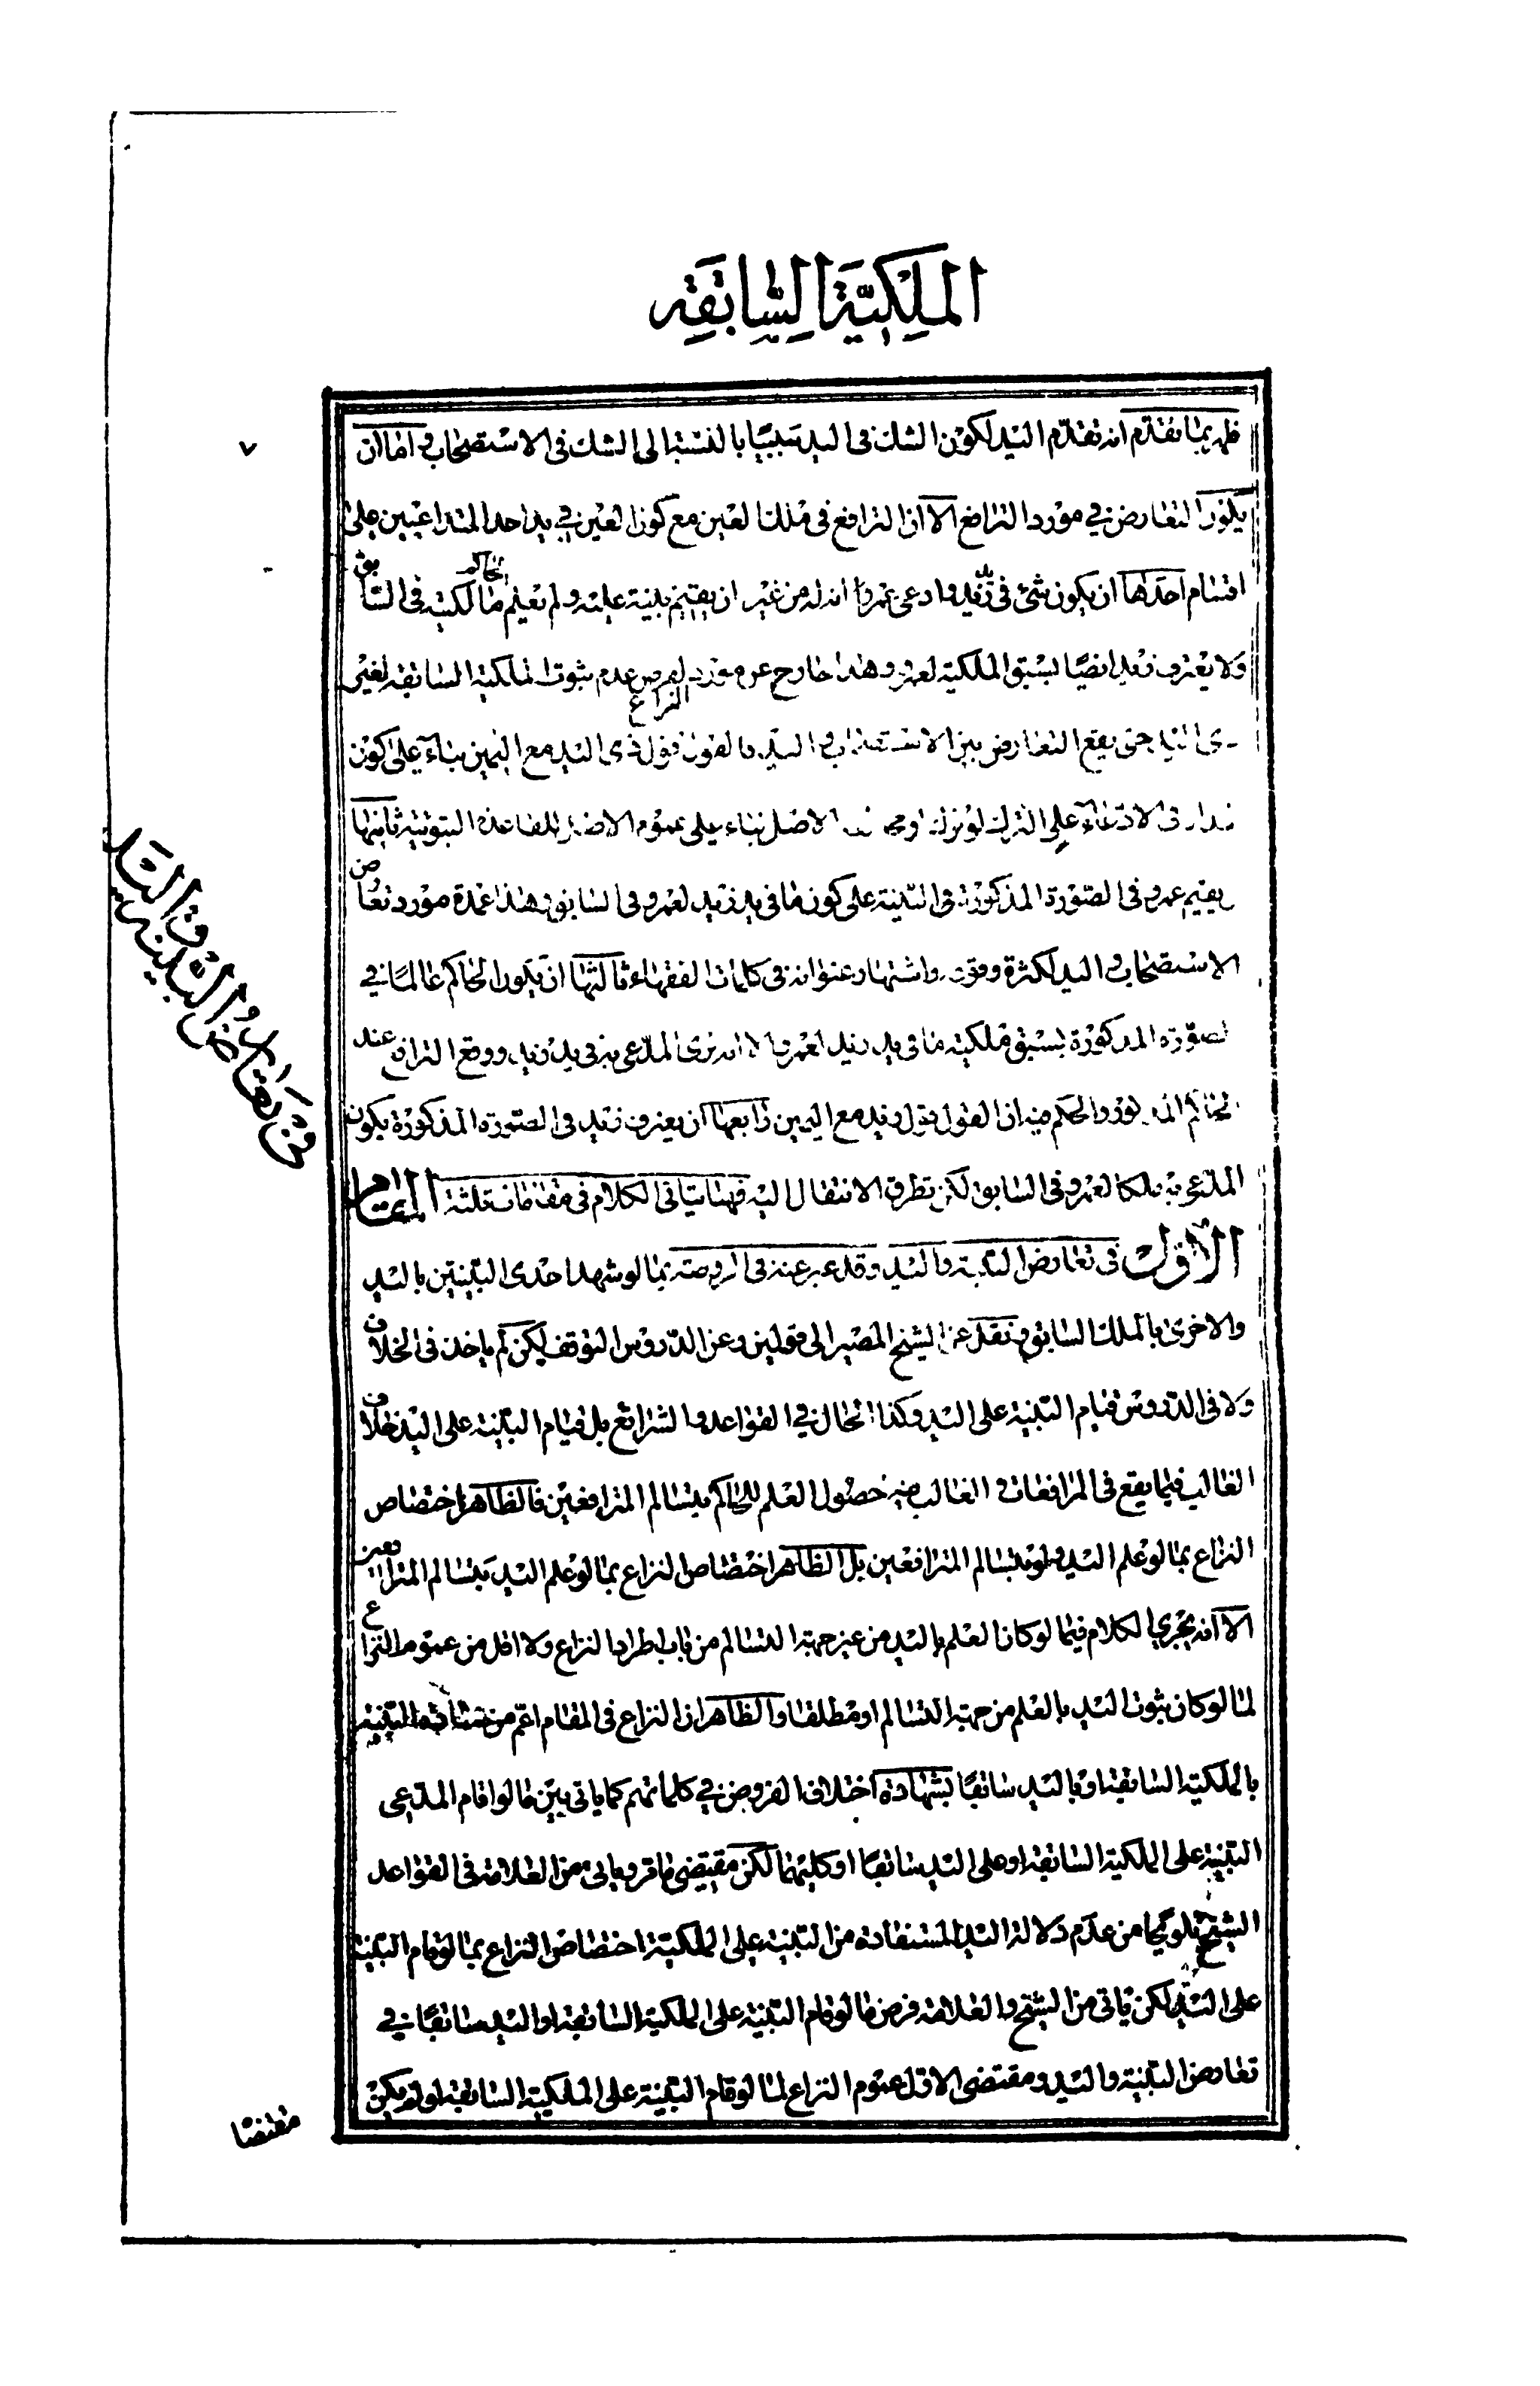 الملكية السابقة
٧
ظهر بما تقدّم انه تقدّم اليد لكون الشك فى اليد سببيّا بالنسبة الى الشك فى الاستصحاب و اما ان
يكون التعارض في مورد الترافع الا ان الترافع فى ملك العين مع كون العين في يد احد المتداعيين على
اقسام احدها ان يكون شئ فى يد زيد و ادعى عمرو انه له من غير ان يقيم بينة عليه و لم يعلم الحاكم مالكيته فى السابق
و لا يعترف زيد ايضا بسبق الملكية لعمرو و هذا خارج عن مورد النزاع لفرض عدم ثبوت الملكية السابقة لغير
ذى اليد حتى يقع التعارض بين الاستصحاب و اليد و القول قول ذى اليد مع اليمين بناء على كون
المدار فى الادعاء على الترك لو ترك او الاصل بناء على عموم الاصل للقاعدة الثبوتية ثانيها
يقيم عمرو فى الصورة المذكورة البينة على كون ما فى يد زيد لعمرو فى السابق و هذا عمدة مورد تعارض
الاستصحاب و اليد لكثرة وقوعه و اشتهار عنوانه فى كلمات الفقهاء ثالثها ان يكون الحاكم عالما في
الصورة المذكورة بسبق ملكية ما فى يد زيد لعمرو الا انه يرى المدّعى به فى يد زيد و وقع الترافع عند
الحاكم المذكور و الحكم فيه ان القول قول زيد مع اليمين رابعها ان يعترف زيد فى الصورة المذكورة بكون
المدّعى به ملكا لعمرو فى السابق لكن تطرق الانتقال اليه فهنا ياتى الكلام فى مقامات ثلثة المقام
الاول فى تعارض البينة و اليد و قد عبر عنه فى الروضة بما لو شهد احدى البينتين باليد
و الاخرى بالملك السابق و نقل عن الشيخ المصير الى قولين و عن الدروس التوقف لكن لم ياخذ فى الخلاف
و لا فى الدروس قيام البينة على اليد و كذا الحال في القواعد و الشرائع بل قيام البينة على اليد خلاف
الغالب فيما يقع فى المرافعات و الغالب فيه حصول العلم للحاكم بتسالم المترافعين فالظاهر اختصاص
النزاع بما لو علم اليد و لو بتسالم المترافعين بل الظاهر اختصاص النزاع بما لو علم اليد بتسالم المترافعين
الا انه يجرى الكلام فيما لو كان العلم باليد من غير جهة التسالم من باب اطراد النزاع و لا اقل من عموم النزاع
لما لو كان ثبوت اليد بالعلم من جهة التسالم او مطلقا و الظاهر ان النزاع فى المقام اعم من شهادة البينة
بالملكية السابقة او باليد سابقا بشهادة اختلاف الفروض في كلماتهم كما ياتى بين ما لو اقام المدعى
البينة على الملكية السابقة او على اليد سابقا او كليهما لكن مقتضى ما مر و ياتى من العلامة فى القواعد
الشيخ تلويحا من عدم دلالة اليد المستفادة من البينة على الملكية اختصاص النزاع بما لو قام البينة
على اليد لكن ياتى من الشيخ و العلامة فرض ما لو قام البينة على الملكية السابقة او اليد سابقا في
تعارض البينة و اليد و مقتضى الاول عموم النزاع لما لو قام البينة على الملكية السابقة او لم يكن
مقتضا
فى تعارض البينة و اليد